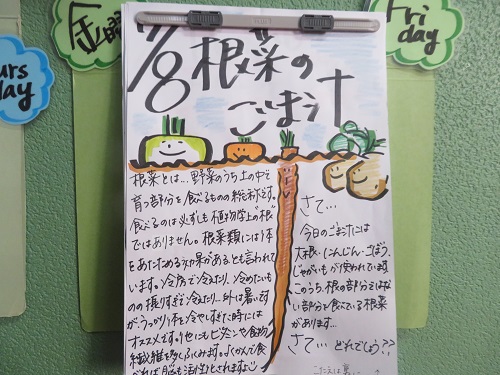 金曜
Fri
day
urs
day
7/8 根菜の
ごぼう汁
根菜とは…野菜のうち土の中で
育つ部分を食べるものの総称です。
食べるのは必ずしも植物学上の"根"
ではありません。根菜類には体
をあたためる効果があるとも言われて
います。冷房で冷えたり、冷めたいも
のの摂りすぎで冷えたり…外は暑いです
が、うっかり体を冷やしすぎた時には
オススメです。他にもビタミンや食物
繊維を多くふくみます。よくかんで食
べれば脳も活性化されますよ
さて…
今日のごぼう汁には
大根・にんじん・ごぼう、
じゃがいもが使われています。
このうち、根の部分ではな
い部分を食べている根菜
があります…
さて…どれでしょう??
こたえは裏に